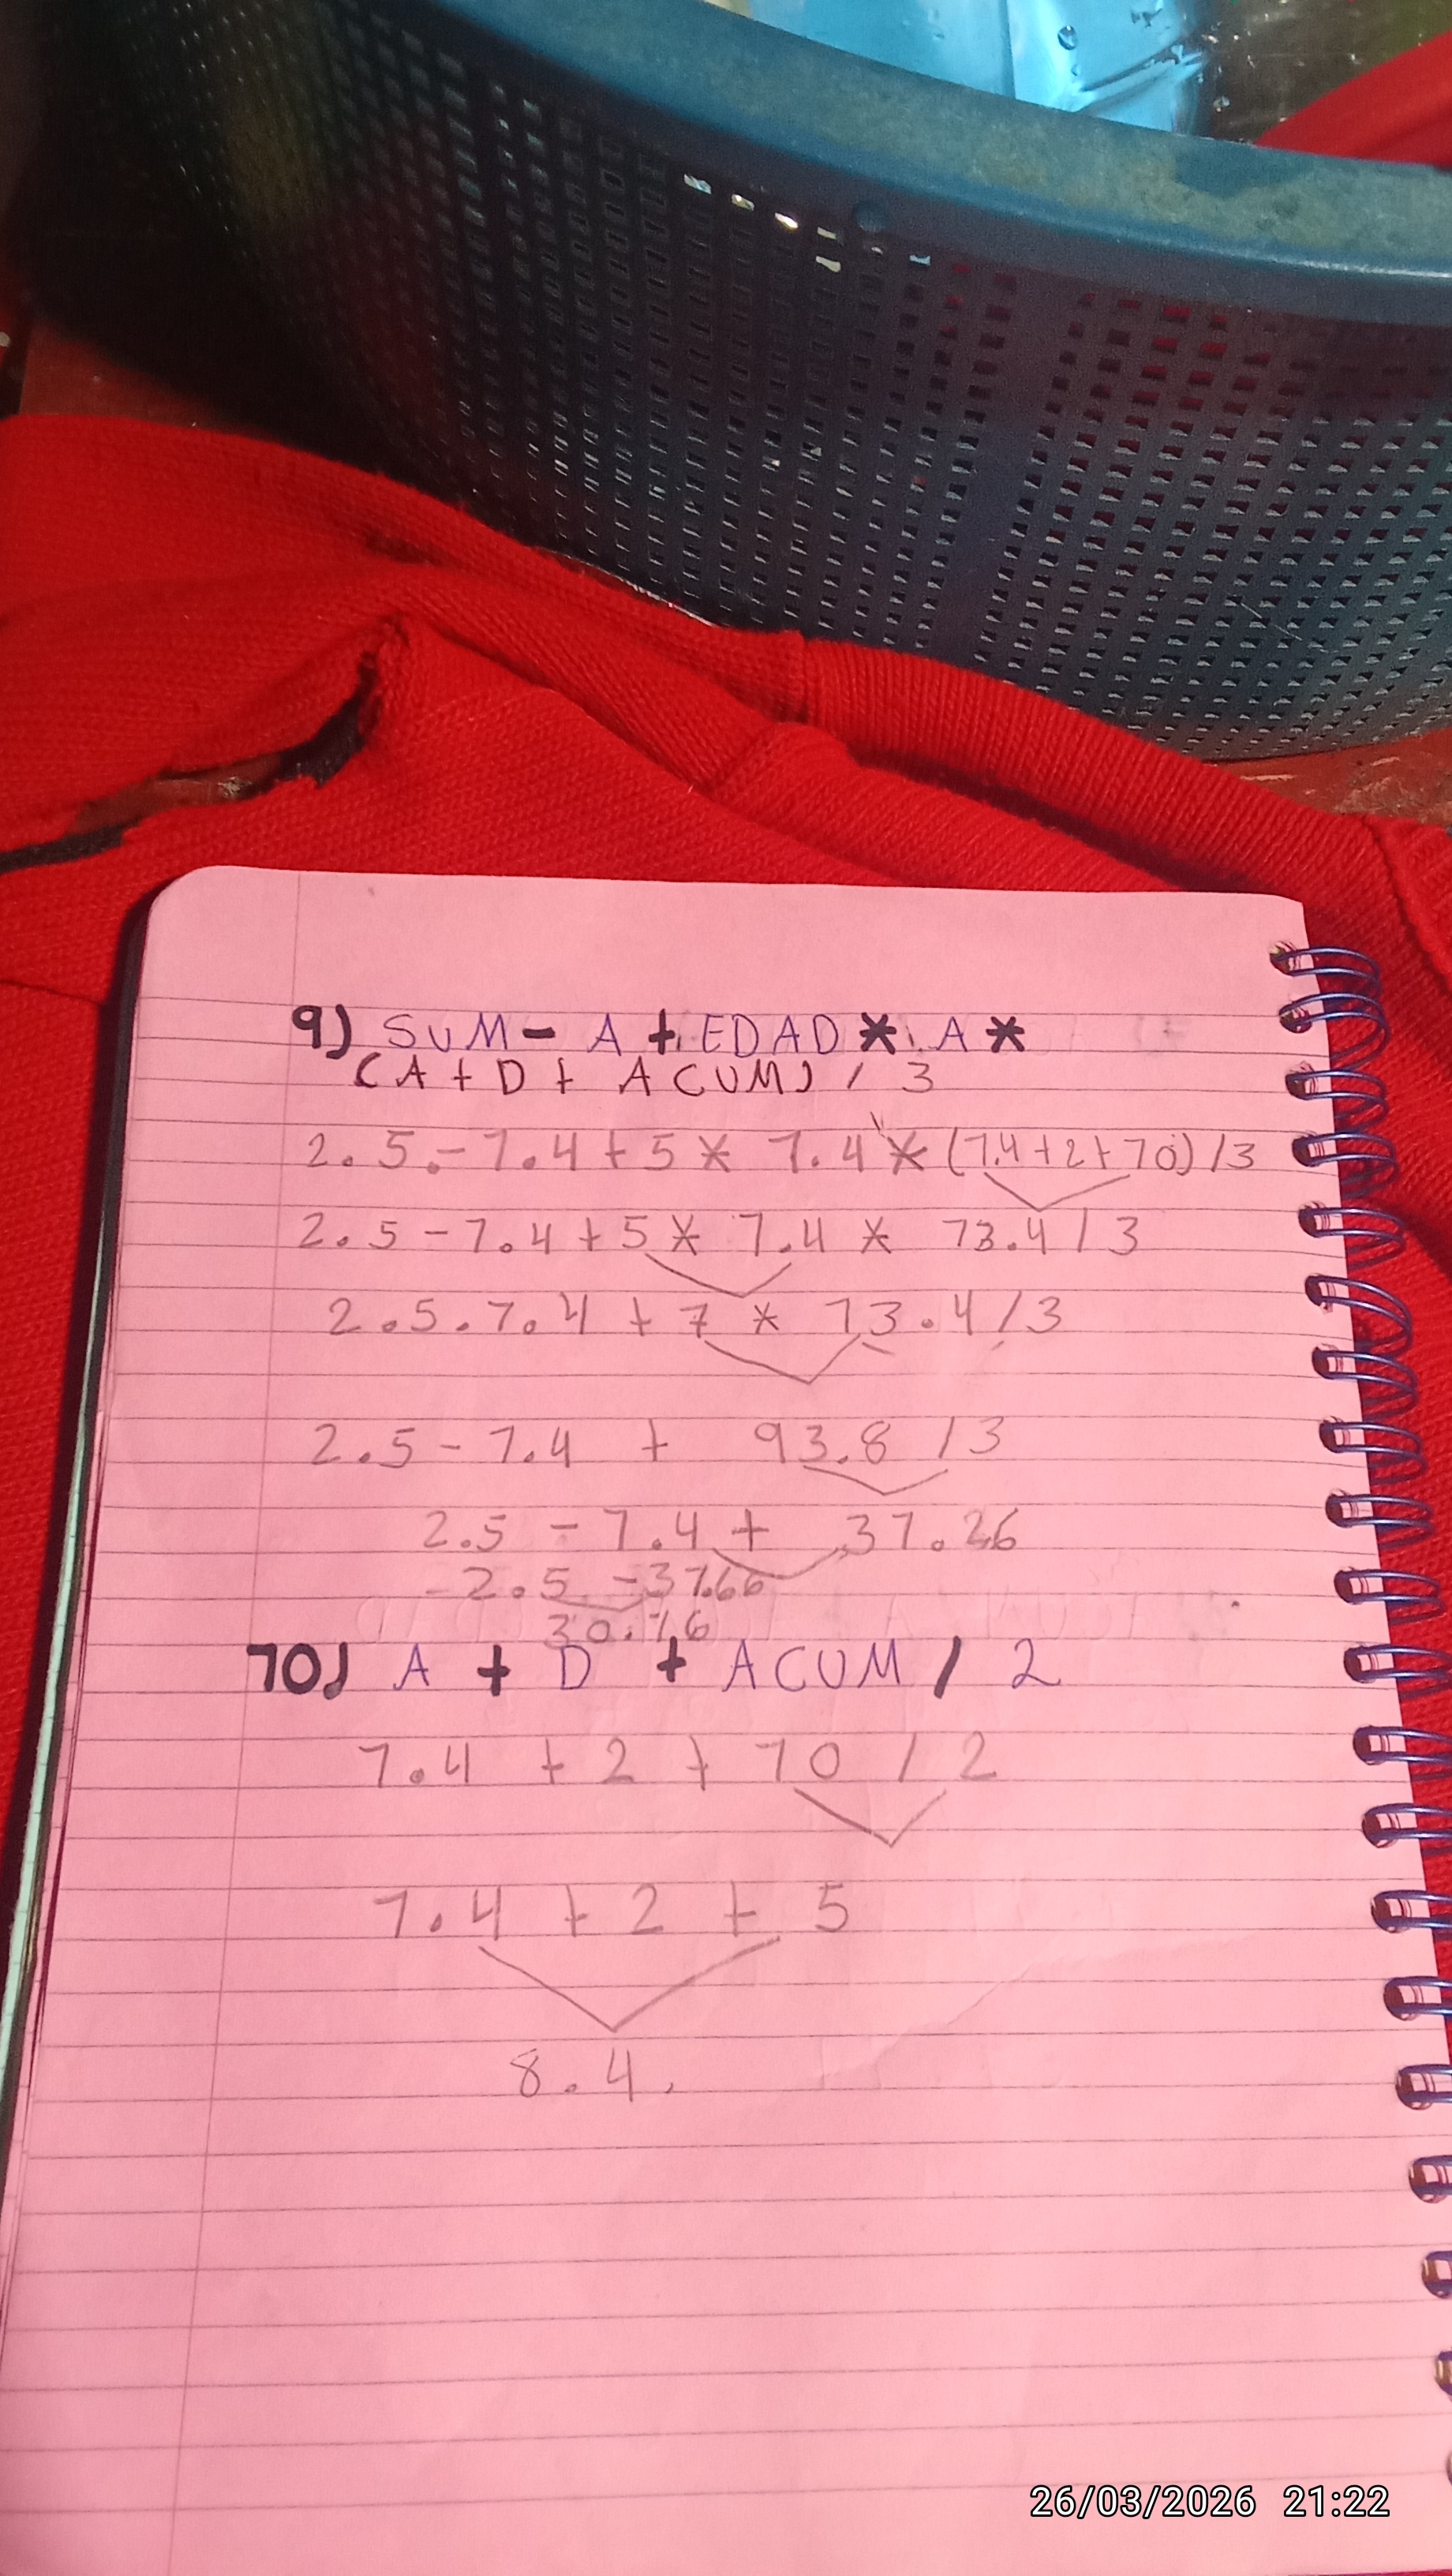 9) SUM - A + EDAD * A *
(A + D + ACUM) / 3
2.5 - 1.4 + 5 * 1.4 * (1.4 + 2 + 10) / 3
2.5 - 1.4 + 5 * 1.4 * 13.4 / 3
2.5 . 1.4 + 7 * 13.4 / 3
2.5 - 1.4 + 93.8 / 3
2.5 - 1.4 + 31.26
- 2.5 - 31.66
30.16
10) A + D + ACUM / 2
1.4 + 2 + 10 / 2
1.4 + 2 + 5
8.4.
26/03/2026 21:22